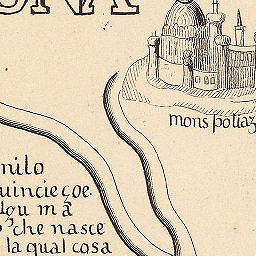 mons poliaz
nilo
uincie çoe.
dou mã
che nasce
la qual cosa